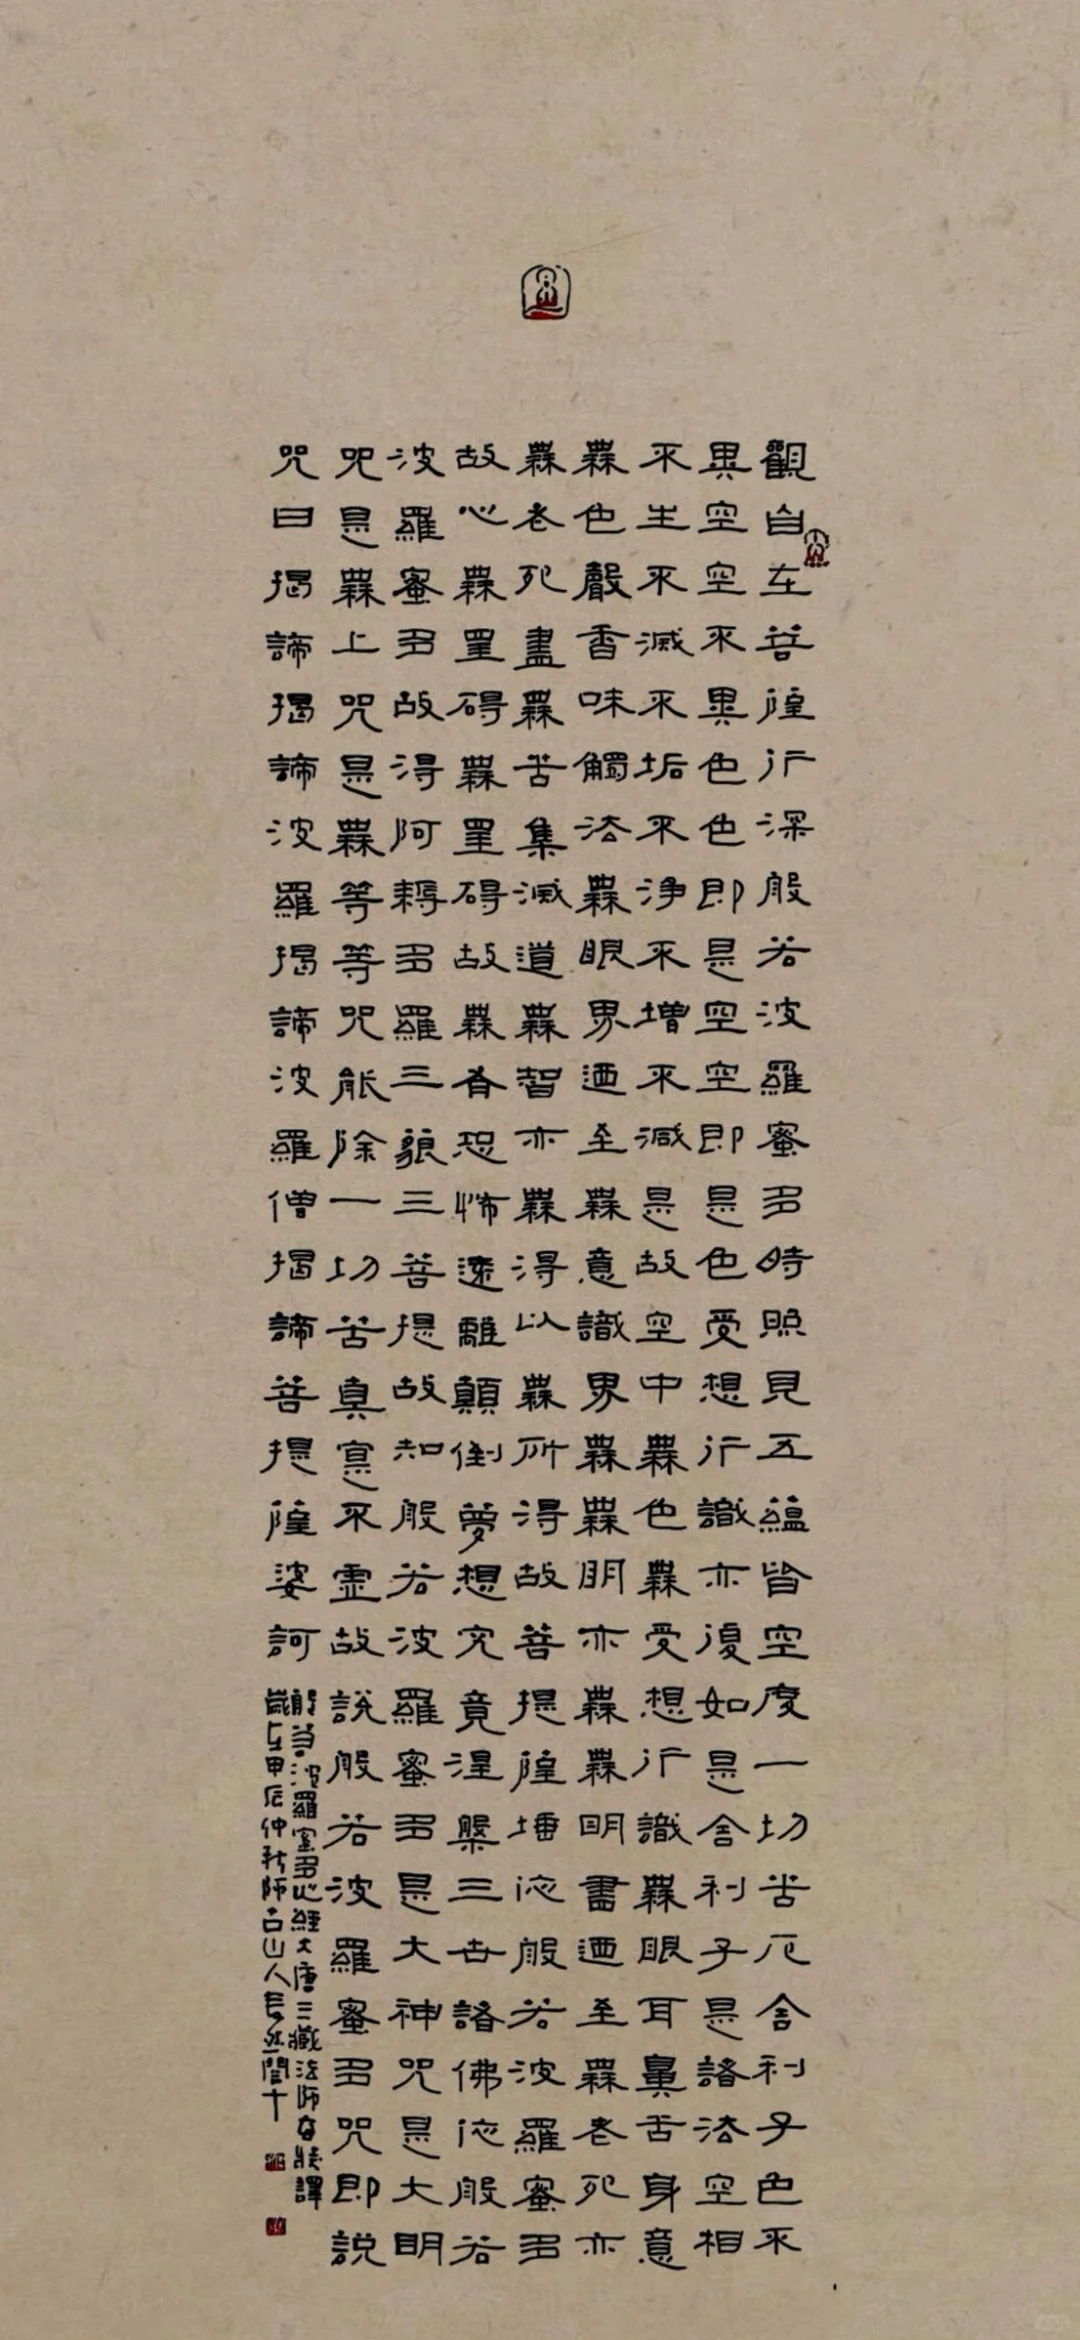 觀自在菩薩行深般若波羅蜜多時照見五蘊皆空度一切苦厄舍利子色不
異空空不異色色即是空空即是色受想行識亦復如是舍利子是諸法空相
不生不滅不垢不淨不增不減是故空中無色無受想行識無眼耳鼻舌身意
無色聲香味觸法無眼界迺至無意識界無無明亦無無明盡迺至無老死亦
無老死盡無苦集滅道無智亦無得以無所得故菩提薩埵依般若波羅蜜多
故心無罣碍無罣碍故無有恐怖遠離顛倒夢想究竟涅槃三世諸佛依般若
波羅蜜多故得阿耨多羅三藐三菩提故知般若波羅蜜多是大神咒是大明
咒是無上咒是無等等咒能除一切苦真實不虛故說般若波羅蜜多咒即說
咒曰揭諦揭諦波羅揭諦波羅僧揭諦菩提薩婆訶
般若波羅蜜多心經大唐三藏法師玄奘譯
歲在甲辰仲秋師古山人